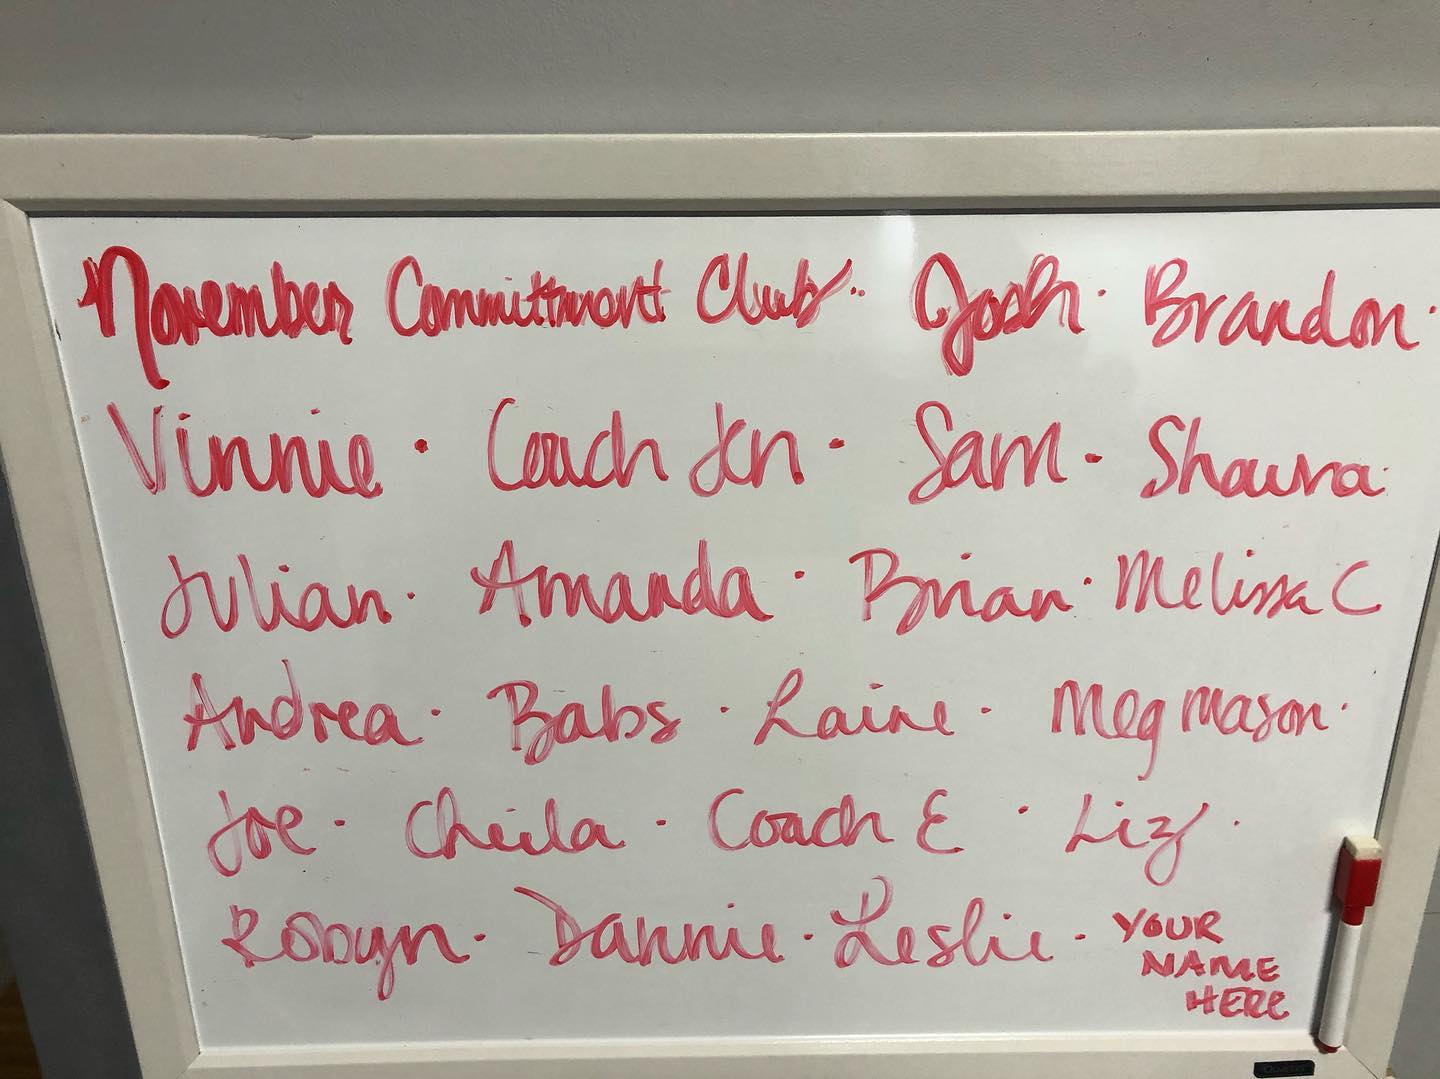 November Commitment Club.. Josh. Brandon.
Vinnie. Coach Jen. Sam. Shawna.
Julian. Amanda. Brian. Melissa C
Andrea. Babs. Laine. Meg Mason.
Joe. Cheila. Coach E. Liz.
Robyn. Dannie. Leslie. YOUR
NAME
HERE